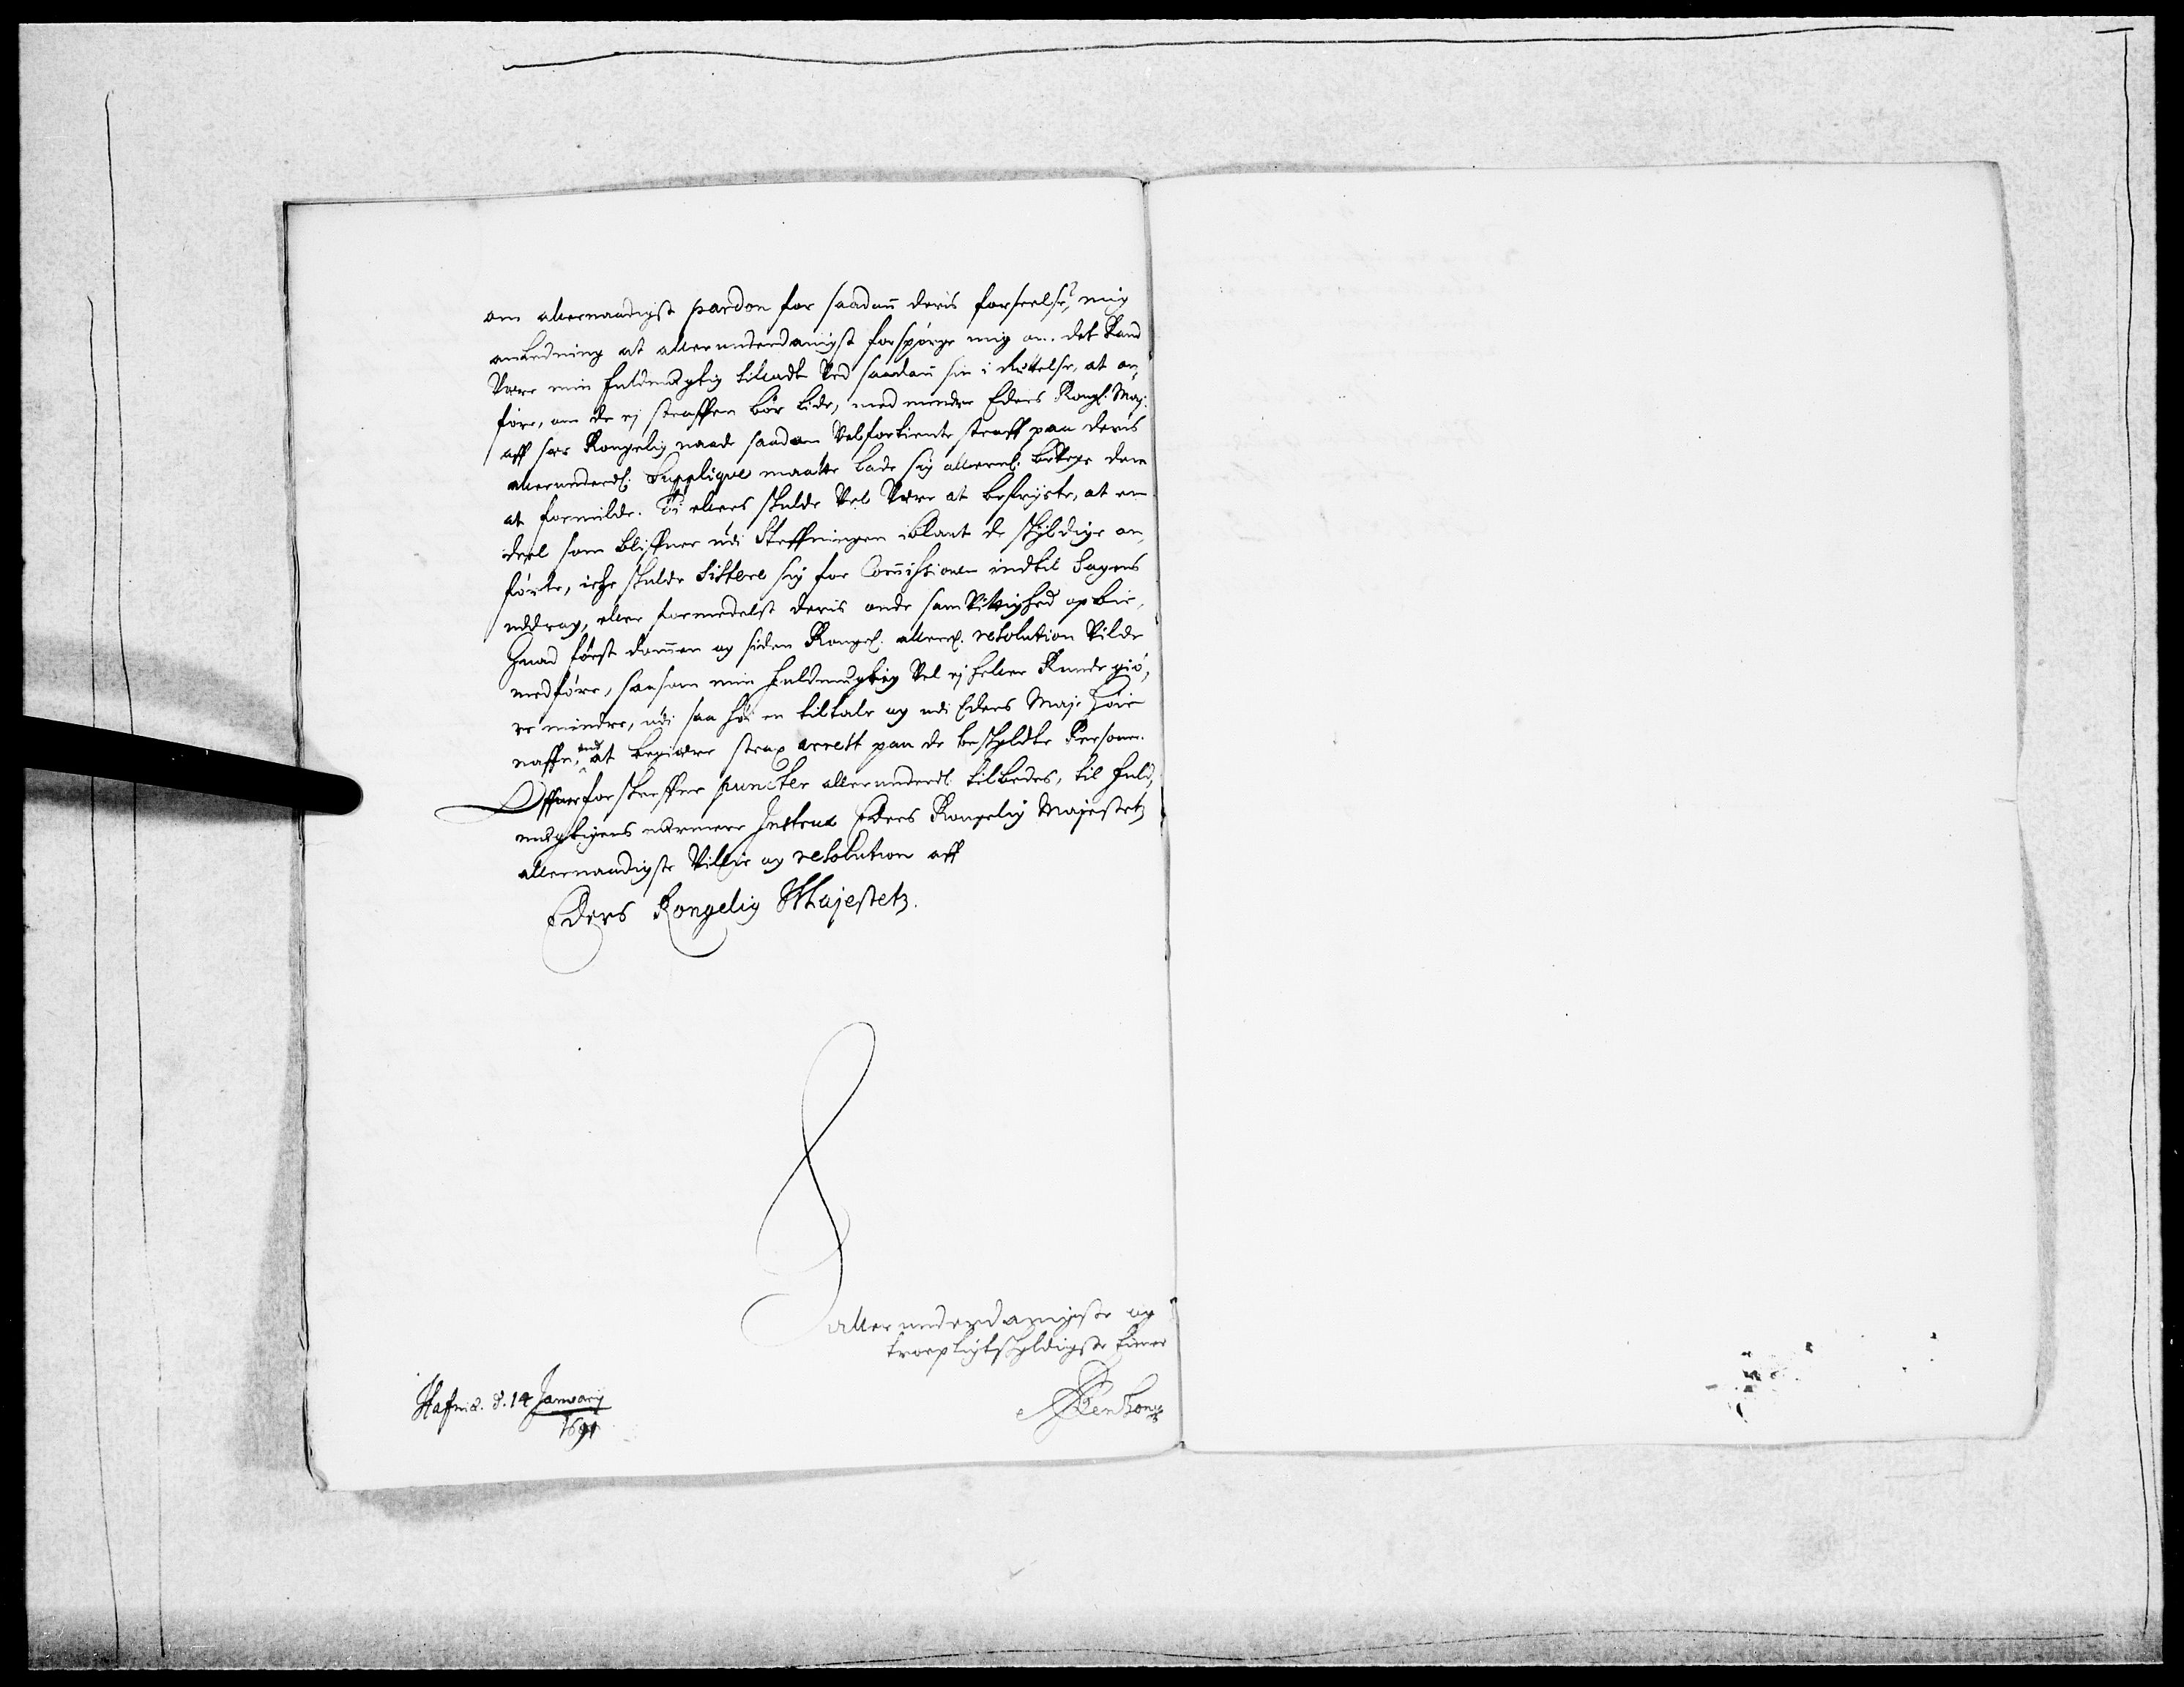 om allernaadigst pardon for saadan deris forseelse, mig
anledning at allerunderdanigst forspørge mig om det kand
være min fuldmegtig tilladt ved saadan sin i Rettelse, at an,
føre, om de ej straffen bør lide, med mindre Eders Kongl: Maj:
aff sær Kongelig naade saadan velfortiente straff paa deris
allerunderd: Supplique maatte lade sig allern: bevege dem
at formilde. Ti ellers skulde vel være at befrygte, at en
deel som bliffver udi Steffningen iblant de skyldige an,
førte, icke skulde sistere sig for Commissionen indtil Sagens
uddrag, eller formedelst deris onde samvittighed opbie,
hvad først dommen og siden Kongel: allern: resolution vilde
medføre, saasom min fuldmegtig vel ej heller kunde giø,
re mindre, udi saa høi en tiltale og udi Eders Maj: høie
naffn, end at begiære strax arrest paa de beskyldte Personer.
Offverforskreffne puncter allerunderd: tilbedes, til fuld,
megtigens nærmere Instrux Eders Kongelig Majestetz
allernaadigste villie og resolution aff
Eders Kongelig Majestetz.
allerunderdanigste og
troepligtskyldigste tiener
Hafniæ. d. 14 Januarij
1691